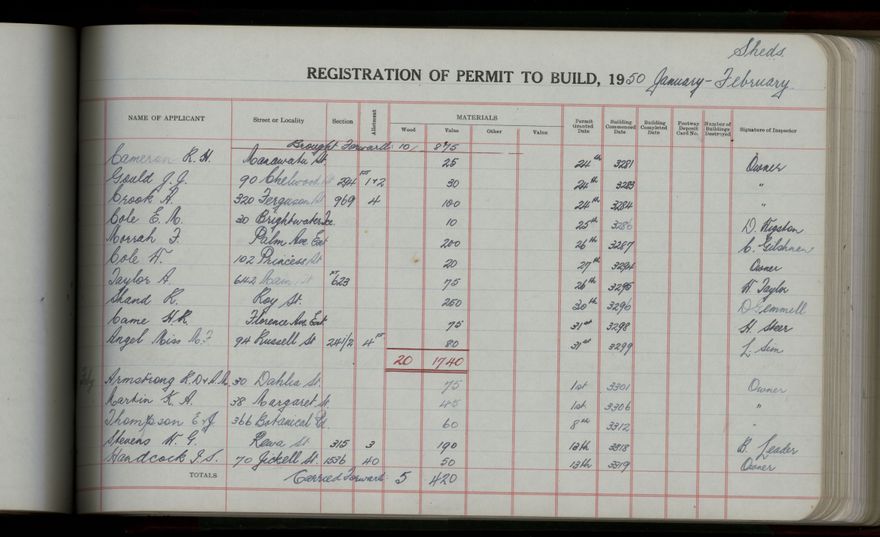 Sheds
REGISTRATION OF PERMIT TO BUILD, 1950 January - February
NAME OF APPLICANT Street or Locality Section Allotment MATERIALS Permit Granted Date Building Commenced Date Building Completed Date Footway Deposit Card No. Number of Buildings Destroyed Signature of Inspector
Wood Value Other Value
Brought Forward 10 875
Cameron K. H. Manawatu St 25 24th 3281 Owner
Gould J. J. 90 Chelwood St 294 pt 1+2 30 24th 3283 "
Crook A. 320 Ferguson St 969 4 100 24th 3284 "
Cole E. M. 30 Brightwater Tce 10 25th 3286 D. Rigston
Morrah F. Palm Ave Ext 200 26th 3287 C. Gilshnan
Cole W. 102 Princess St 20 27th 3294 Owner
Taylor A. 642 Main St pt 623 75 26th 3295 W. Taylor
Shand K. Roy St. 250 30th 3296 D Gemmell
Came H.R. Florence Ave Ext 75 31st 3298 H. Steer
Angel Miss M. F 94 Russell St 241/2 4 pt 80 31st 3299 L. Sim
20 1740
Feby Armstrong K.D + A.M. 30 Dahlia St. 75 1st 3301 Owner
Martin K. A. 38 Margaret St. 45 1st 3306 "
Thompson E. J 366 Botanical Rd 60 8th 3312 "
Stevens W. G. Rewa St 315 3 190 13th 3318 B. Leader
Handcock I. S. 70 Jickell St. 1536 40 50 13th 3319 Owner
TOTALS Carried Forward 5 420